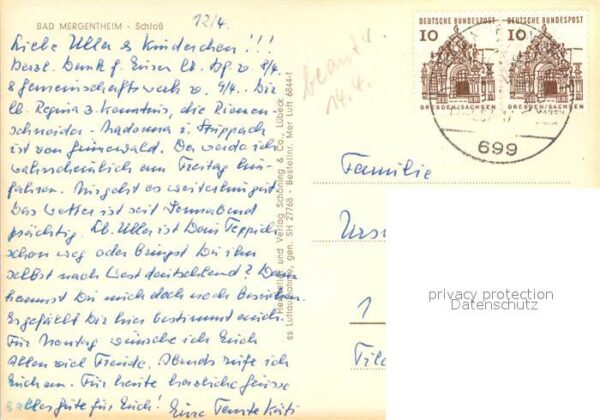 BAD MERGENTHEIM - Schloß
12/4.
Liebe Ulla & Kinderchen!!!
Herzl. Dank f. Euren lb. Bf. v. 8/4.
& Gemeinschaftswerk v. 9/4. Die
lb. Regina z. Kenntnis, die Riemen-
schneider - Madonna in Stuppach
ist von Grünewald. Da werde ich
wahrscheinlich am Freitag hin-
fahren. Mir geht es weiterhin gut.
Das Wetter ist seit Sonnabend
prächtig. Lb. Ulla ist Dein Teppich
schon weg oder bringst Du ihn
selbst nach Westdeutschland? Dann
kannst Du mich doch noch besuchen.
Es gefällt Dir hier bestimmt auch.
Für Montag wünsche ich Euch
Allen viel Freude. Abends rufe ich
Euch an. Für heute herzliche Grüsse
& alles Gute für Euch! Eure Tante Käti
beantw.
14.4.
Hersteller und Verlag Schöning & Co., Lübeck
ss Luftaufnahme, gen. SH 27768 - Bestellnr. Mer Luft 6844-f
DEUTSCHE BUNDESPOST
10
DRESDEN/SACHSEN
DEUTSCHE BUNDESPOST
10
DRESDEN/SACHSEN
699
Familie
Urs
1
privacy protection
Datenschutz